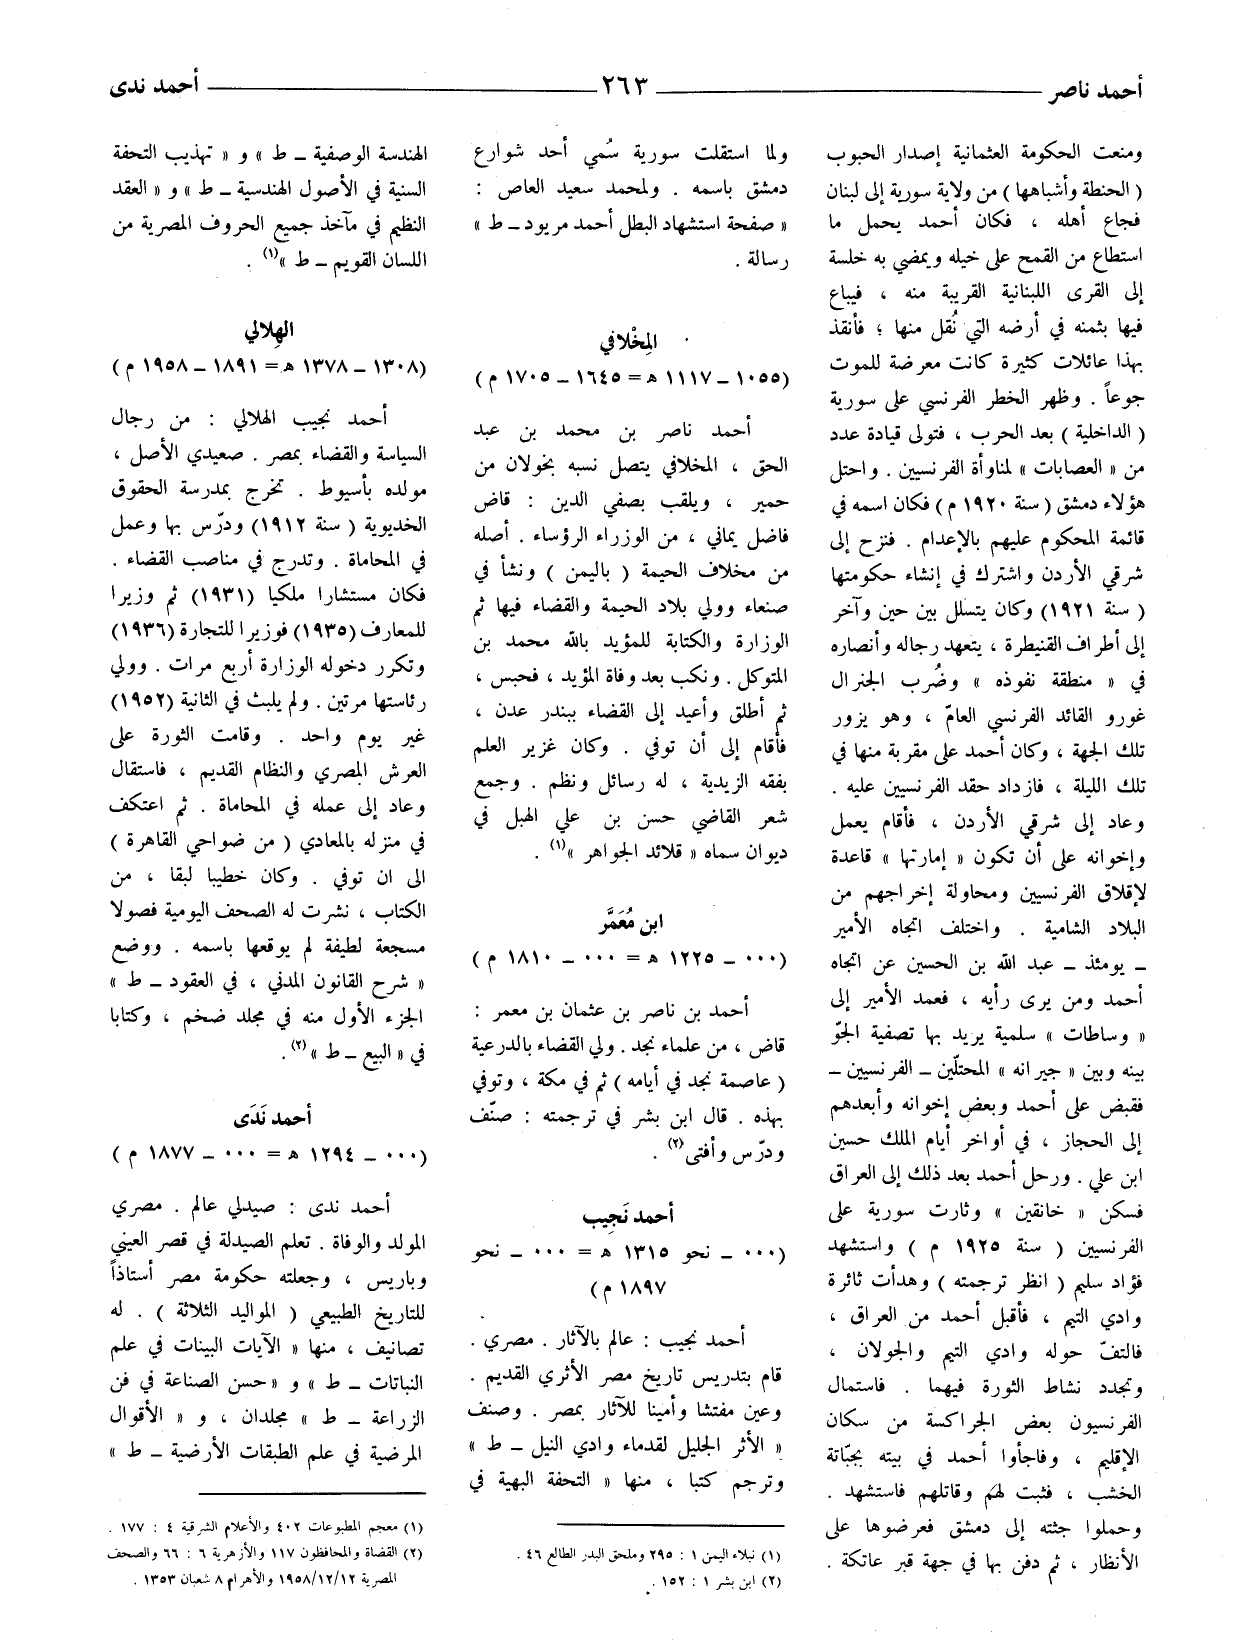 أحمد ناصر
٢٦٣
أحمد ندى
ومنعت الحكومة العثمانية إصدار الحبوب
( الحنطة وأشباهها ) من ولاية سورية إلى لبنان
فجاع أهله ، فكان أحمد يحمل ما
استطاع من القمح على خيله ويمضي به خلسة
إلى القرى اللبنانية القريبة منه ، فيباع
فيها بثمنه في أرضه التي نُقل منها ؛ فأنقذ
بهذا عائلات كثيرة كانت معرضة للموت
جوعاً . وظهر الخطر الفرنسي على سورية
( الداخلية ) بعد الحرب ، فتولى قيادة عدد
من « العصابات » لمناوأة الفرنسيين . واحتل
هؤلاء دمشق ( سنة ١٩٢٠ م ) فكان اسمه في
قائمة المحكوم عليهم بالإعدام . فنزح إلى
شرقي الأردن واشترك في إنشاء حكومتها
( سنة ١٩٢١) وكان يتسلل بين حين وآخر
إلى أطراف القنيطرة ، يتعهد رجاله وأنصاره
في « منطقة نفوذه » وضُرب الجنرال
غورو القائد الفرنسي العامّ ، وهو يزور
تلك الجهة ، وكان أحمد على مقربة منها في
تلك الليلة ، فازداد حقد الفرنسيين عليه .
وعاد إلى شرقي الأردن ، فأقام يعمل
وإخوانه على أن تكون « إمارتها » قاعدة
لإقلاق الفرنسيين ومحاولة إخراجهم من
البلاد الشامية . واختلف اتجاه الأمير
ـ يومئذ ـ عبد الله بن الحسين عن اتجاه
أحمد ومن يرى رأيه ، فعمد الأمير إلى
« وساطات » سلمية يريد بها تصفية الجوّ
بينه وبين « جيرانه » المحتلّين ـ الفرنسيين ـ
فقبض على أحمد وبعض إخوانه وأبعدهم
إلى الحجاز ، في أواخر أيام الملك حسين
ابن علي . ورحل أحمد بعد ذلك إلى العراق
فسكن « خانقين » وثارت سورية على
الفرنسيين ( سنة ١٩٢٥ م ) واستشهد
فؤاد سليم ( انظر ترجمته ) وهدأت ثائرة
وادي التيم ، فأقبل أحمد من العراق ،
فالتفّ حوله وادي التيم والجولان ،
وتجدد نشاط الثورة فيهما . فاستمال
الفرنسيون بعض الجراكسة من سكان
الإقليم ، وفاجأوا أحمد في بيته بجبّاتة
الخشب ، فثبت لهم وقاتلهم فاستشهد .
وحملوا جثته إلى دمشق فعرضوها على
الأنظار ، ثم دفن بها في جهة قبر عاتكة .
ولما استقلت سورية سُمي أحد شوارع
دمشق باسمه . ولمحمد سعيد العاص :
« صفحة استشهاد البطل أحمد مريود ـ ط »
رسالة .
المِخْلافي
(١٠٥٥ ـ ١١١٧ ه‍ = ١٦٤٥ ـ ١٧٠٥ م )
أحمد ناصر بن محمد بن عبد
الحق ، المخلافي يتصل نسبه بخولان من
حمير ، ويلقب بصفي الدين : قاض
فاضل يماني ، من الوزراء الرؤساء . أصله
من مخلاف الحيمة ( باليمن ) ونشأ في
صنعاء وولي بلاد الحيمة والقضاء فيها ثم
الوزارة والكتابة للمؤيد بالله محمد بن
المتوكل . ونكب بعد وفاة المؤيد ، فحبس ،
ثم أطلق وأعيد إلى القضاء ببندر عدن ،
فأقام إلى أن توفي . وكان غزير العلم
بفقه الزيدية ، له رسائل ونظم . وجمع
شعر القاضي حسن بن علي الهبل في
ديوان سماه « قلائد الجواهر »(١) .
ابن مُعَمَّر
(٠٠٠ ـ ١٢٢٥ ه‍ = ٠٠٠ ـ ١٨١٠ م )
أحمد بن ناصر بن عثمان بن معمر :
قاض ، من علماء نجد . ولي القضاء بالدرعية
( عاصمة نجد في أيامه ) ثم في مكة ، وتوفي
بهذه . قال ابن بشر في ترجمته : صنّف
ودرّس وأفتى(٢) .
أحمد نَجِيب
(٠٠٠ ـ نحو ١٣١٥ ه‍ = ٠٠٠ ـ نحو
١٨٩٧ م )
أحمد نجيب : عالم بالآثار . مصري .
قام بتدريس تاريخ مصر الأثري القديم .
وعين مفتشا وأمينا للآثار بمصر . وصنف
« الأثر الجليل لقدماء وادي النيل ـ ط »
وترجم كتبا ، منها « التحفة البهية في
(١) نبلاء اليمن ١ : ٢٩٥ وملحق البدر الطالع ٤٦ .
(٢) ابن بشر ١ : ١٥٢ .
الهندسة الوصفية ـ ط » و « تهذيب التحفة
السنية في الأصول الهندسية ـ ط » و « العقد
النظيم في مآخذ جميع الحروف المصرية من
اللسان القويم ـ ط »(١) .
الهِلالي
(١٣٠٨ ـ ١٣٧٨ ه‍ = ١٨٩١ ـ ١٩٥٨ م )
أحمد نجيب الهلالي : من رجال
السياسة والقضاء بمصر . صعيدي الأصل ،
مولده بأسيوط . تخرج بمدرسة الحقوق
الخديوية ( سنة ١٩١٢) ودرّس بها وعمل
في المحاماة . وتدرج في مناصب القضاء .
فكان مستشارا ملكيا (١٩٣١) ثم وزيرا
للمعارف (١٩٣٥) فوزيرا للتجارة (١٩٣٦)
وتكرر دخوله الوزارة أربع مرات . وولي
رئاستها مرتين . ولم يلبث في الثانية (١٩٥٢)
غير يوم واحد . وقامت الثورة على
العرش المصري والنظام القديم ، فاستقال
وعاد إلى عمله في المحاماة . ثم اعتكف
في منزله بالمعادي ( من ضواحي القاهرة )
الى ان توفي . وكان خطيبا لبقا ، من
الكتاب ، نشرت له الصحف اليومية فصولا
مسجعة لطيفة لم يوقعها باسمه . ووضع
« شرح القانون المدني ، في العقود ـ ط »
الجزء الأول منه في مجلد ضخم ، وكتابا
في « البيع ـ ط »(٢) .
أحمد نَدَى
(٠٠٠ ـ ١٢٩٤ ه‍ = ٠٠٠ ـ ١٨٧٧ م )
أحمد ندى : صيدلي عالم . مصري
المولد والوفاة . تعلم الصيدلة في قصر العيني
وباريس ، وجعلته حكومة مصر أستاذاً
للتاريخ الطبيعي ( المواليد الثلاثة ) . له
تصانيف ، منها « الآيات البينات في علم
النباتات ـ ط » و « حسن الصناعة في فن
الزراعة ـ ط » مجلدان ، و « الأقوال
المرضية في علم الطبقات الأرضية ـ ط »
(١) معجم المطبوعات ٤٠٢ والأعلام الشرقية ٤ : ١٧٧ .
(٢) القضاة والمحافظون ١١٧ والأزهرية ٦ : ٦٦ والصحف
المصرية ١٩٥٨/١٢/١٢ والأهرام ٨ شعبان ١٣٥٣ .